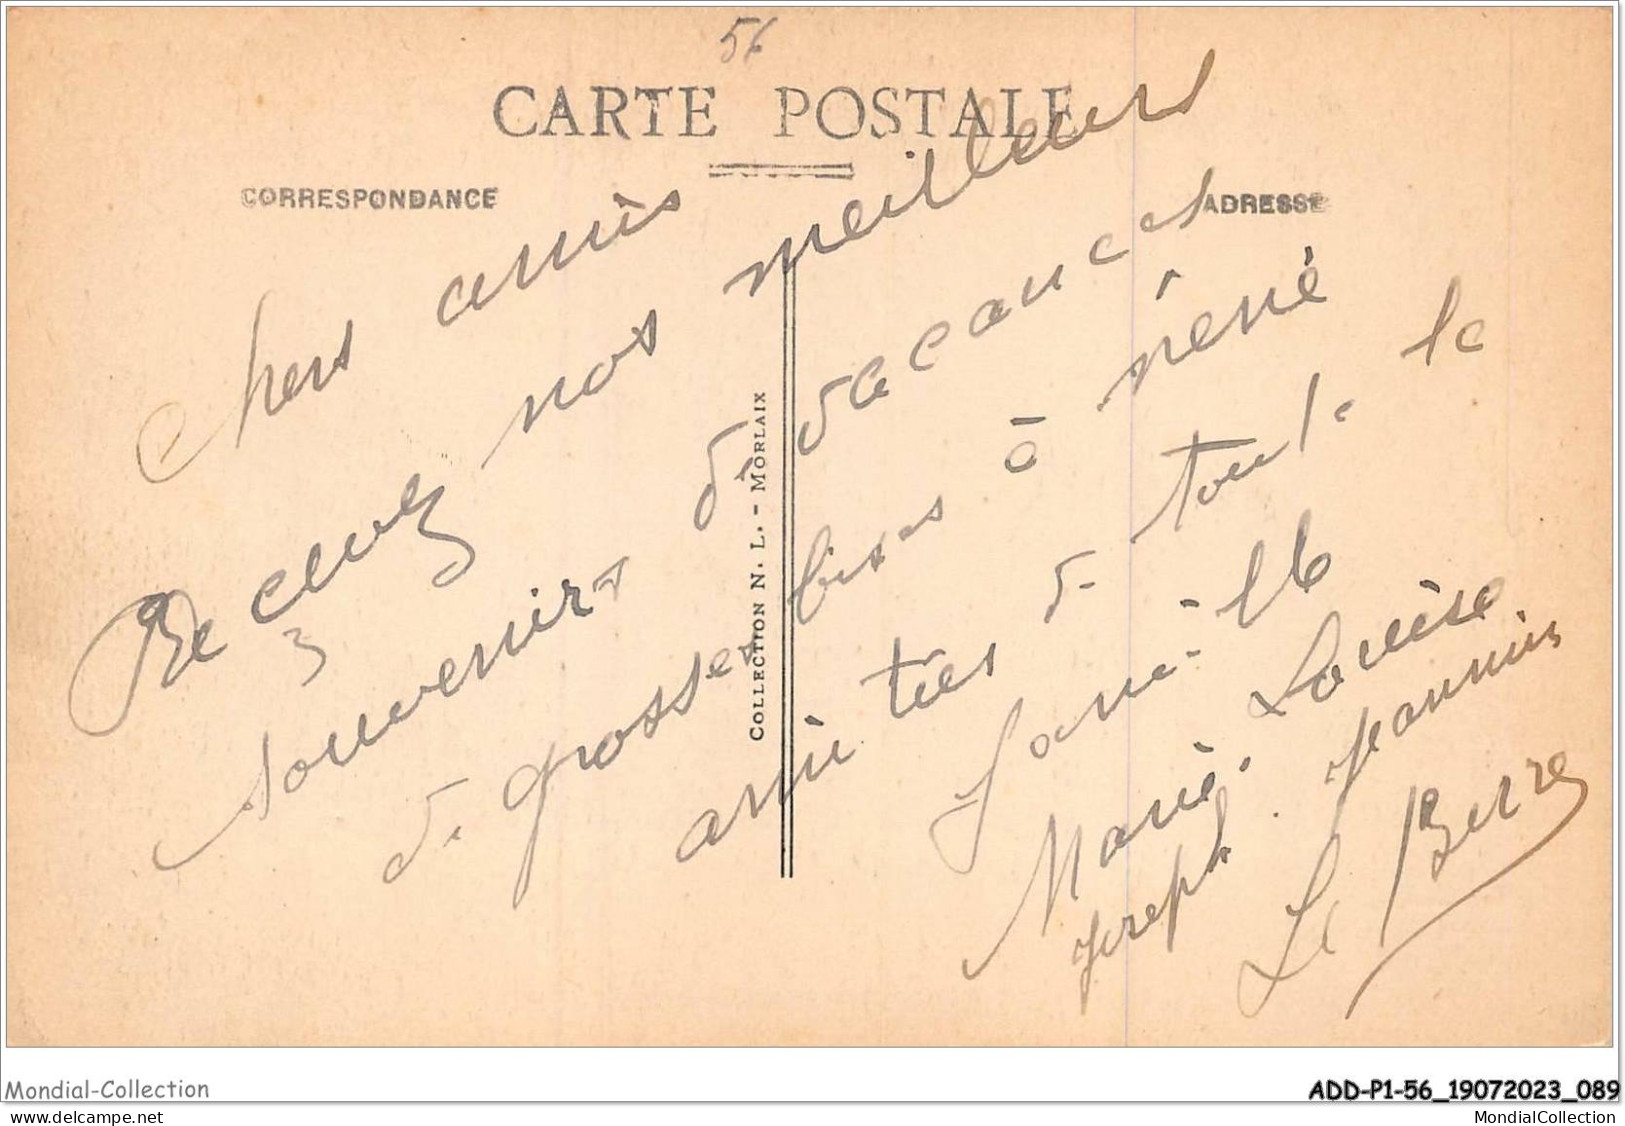 56
CARTE POSTALE
CORRESPONDANCE
ADRESSE
Chers amiès
Recevez nos meilleurs
souvenirs de vacances
de grosses bises à réné
amitiés de toute la
famille
Marie. Louise
Joseph. Jeannine
Le Berre
COLLECTION N. L. - MORLAIX
Mondial-Collection
ADD-P1-56_19072023_089
www.delcampe.net
MondialCollection